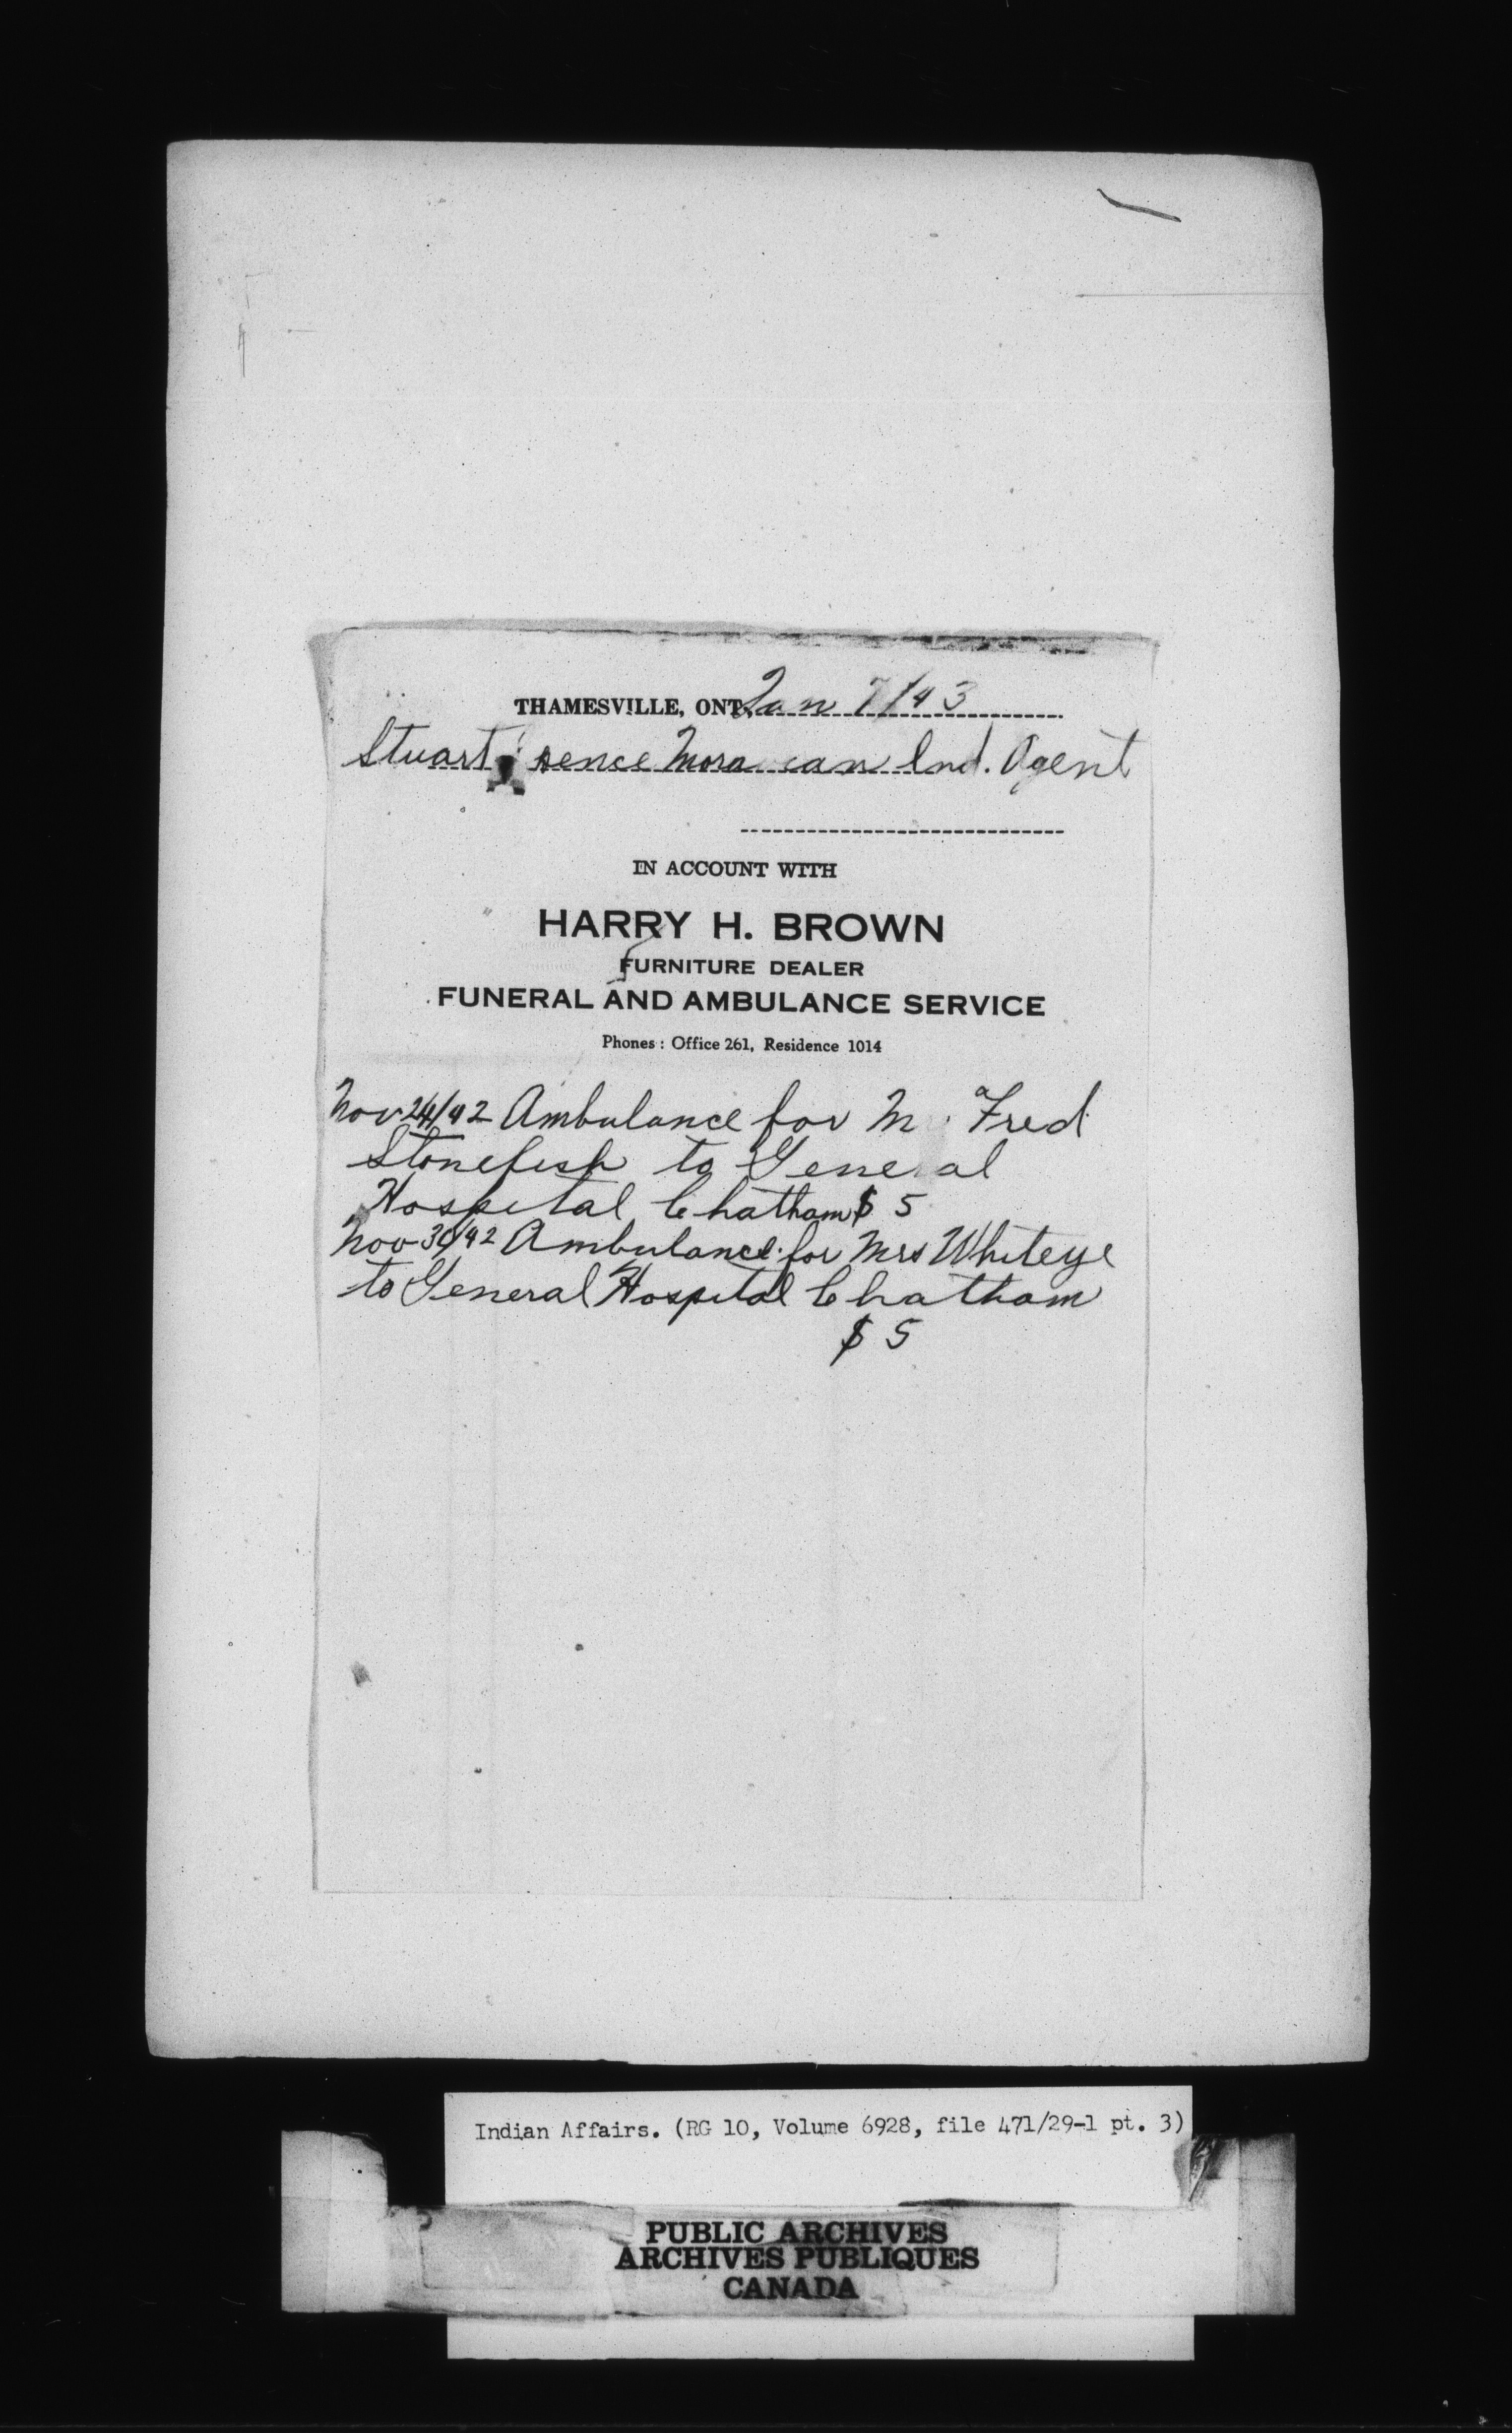 THAMESVILLE, ONT. Jan 7/43
Stuart Moravian Ind. Agent
IN ACCOUNT WITH
HARRY H. BROWN
FURNITURE DEALER
FUNERAL AND AMBULANCE SERVICE
Phones: Office 261, Residence 1014
Nov 24/42 Ambulance for Fred
Stonefish to General
Hospital Chatham $ 5
Nov 30/42 Ambulance for Mrs Whiteye
to General Hospital Chatham
$ 5
Indian Affairs. (RG 10, Volume 6928, file 471/29-1 pt. 3)
PUBLIC ARCHIVES
ARCHIVES PUBLIQUES
CANADA